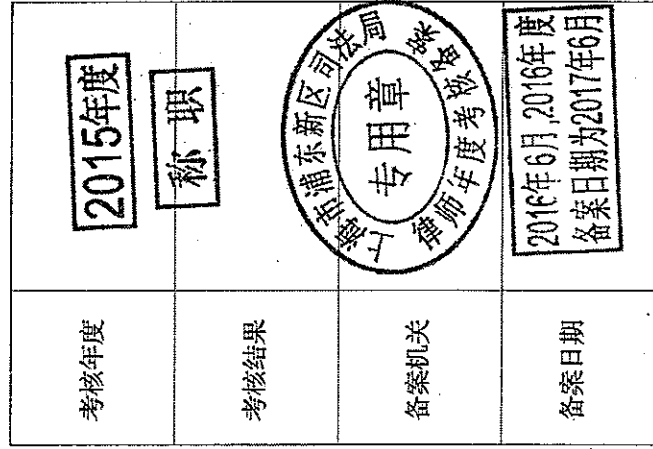 考核年度
2015年度
考核结果
称职
备案机关
上海市浦东新区司法局
专用章
律师年度考核备案
备案日期
2016年6月,2016年度
备案日期为2017年6月